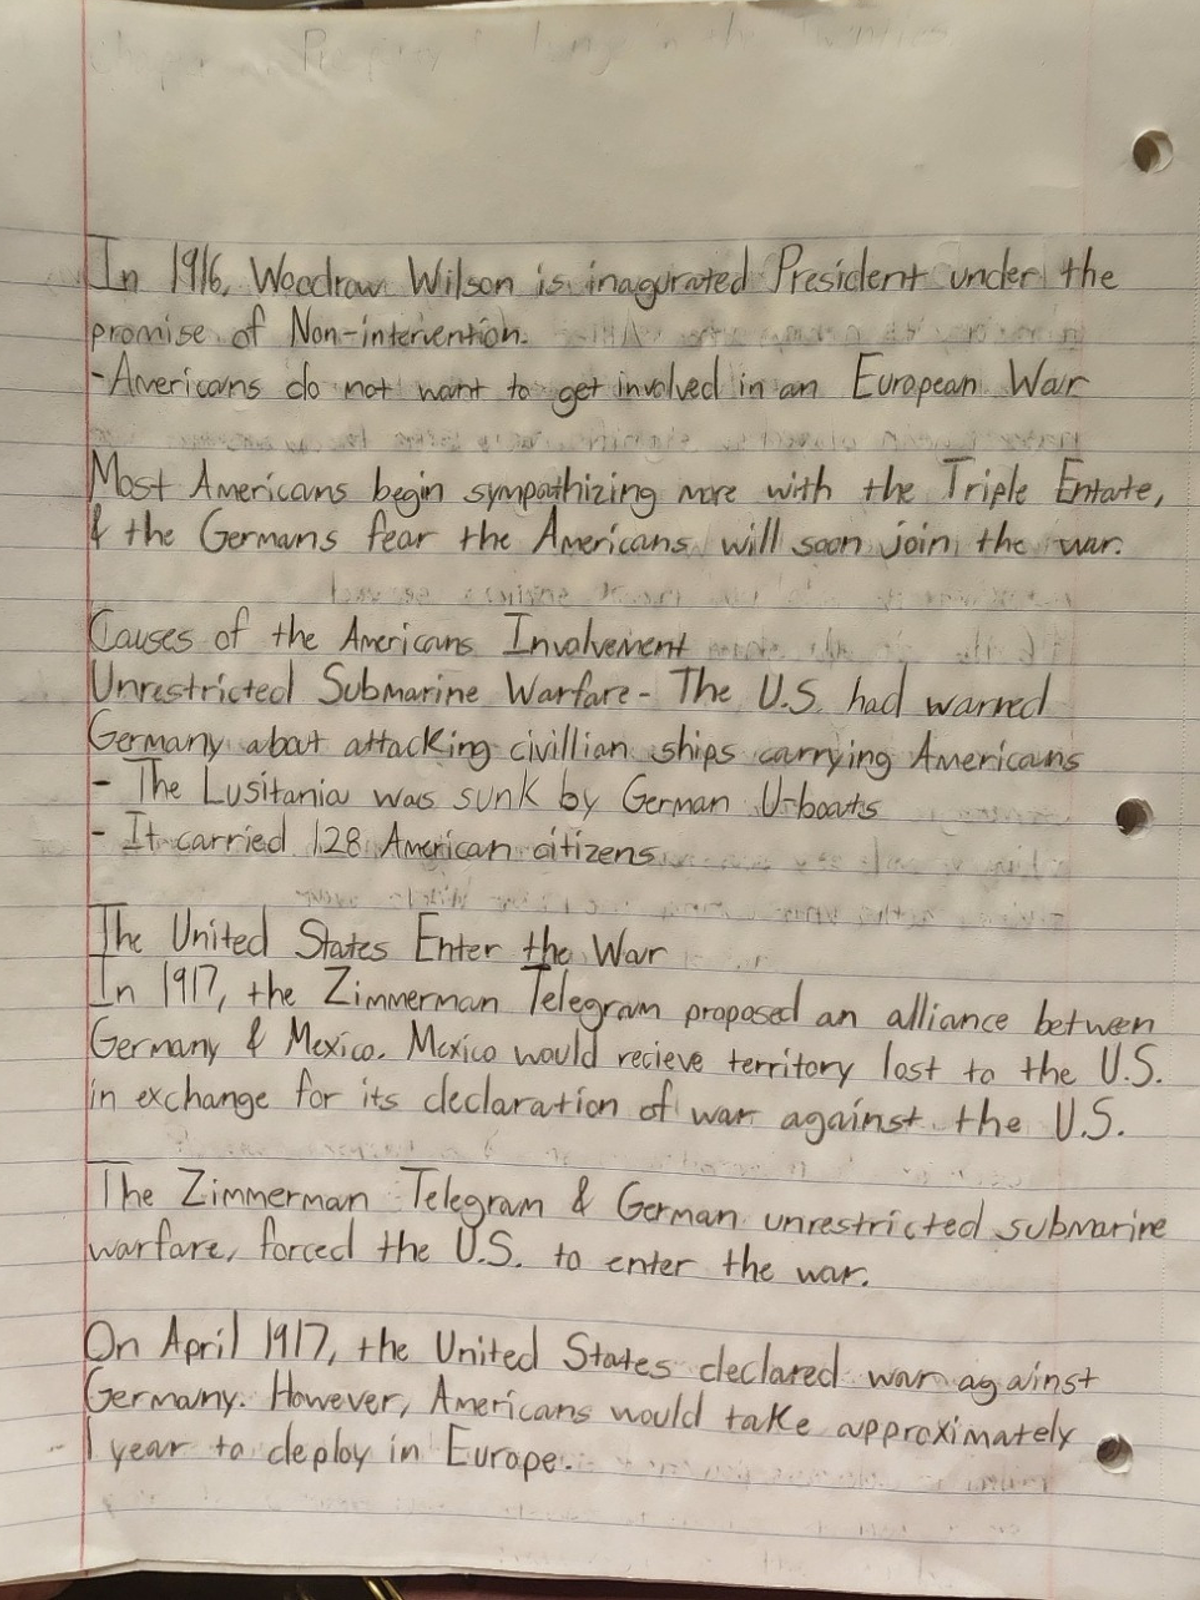 In 1916, Woodrow Wilson is inagurated President under the
promise of Non-intervention.
-Americans do not want to get involved in an European War
Most Americans begin sympathizing more with the Triple Entate,
& the Germans fear the Americans will soon join the war.
Causes of the Americans Involvement
Unrestricted Submarine Warfare - The U.S. had warned
Germany about attacking civillian ships carrying Americans
- The Lusitania was sunk by German U-boats
- It carried 128 American citizens
The United States Enter the War
In 1917, the Zimmerman Telegram proposed an alliance between
Germany & Mexico. Mexico would recieve territory lost to the U.S.
in exchange for its declaration of war against the U.S.
The Zimmerman Telegram & German unrestricted submarine
warfare, forced the U.S. to enter the war.
On April 1917, the United States declared war against
Germany. However, Americans would take approximately
1 year to deploy in Europe.